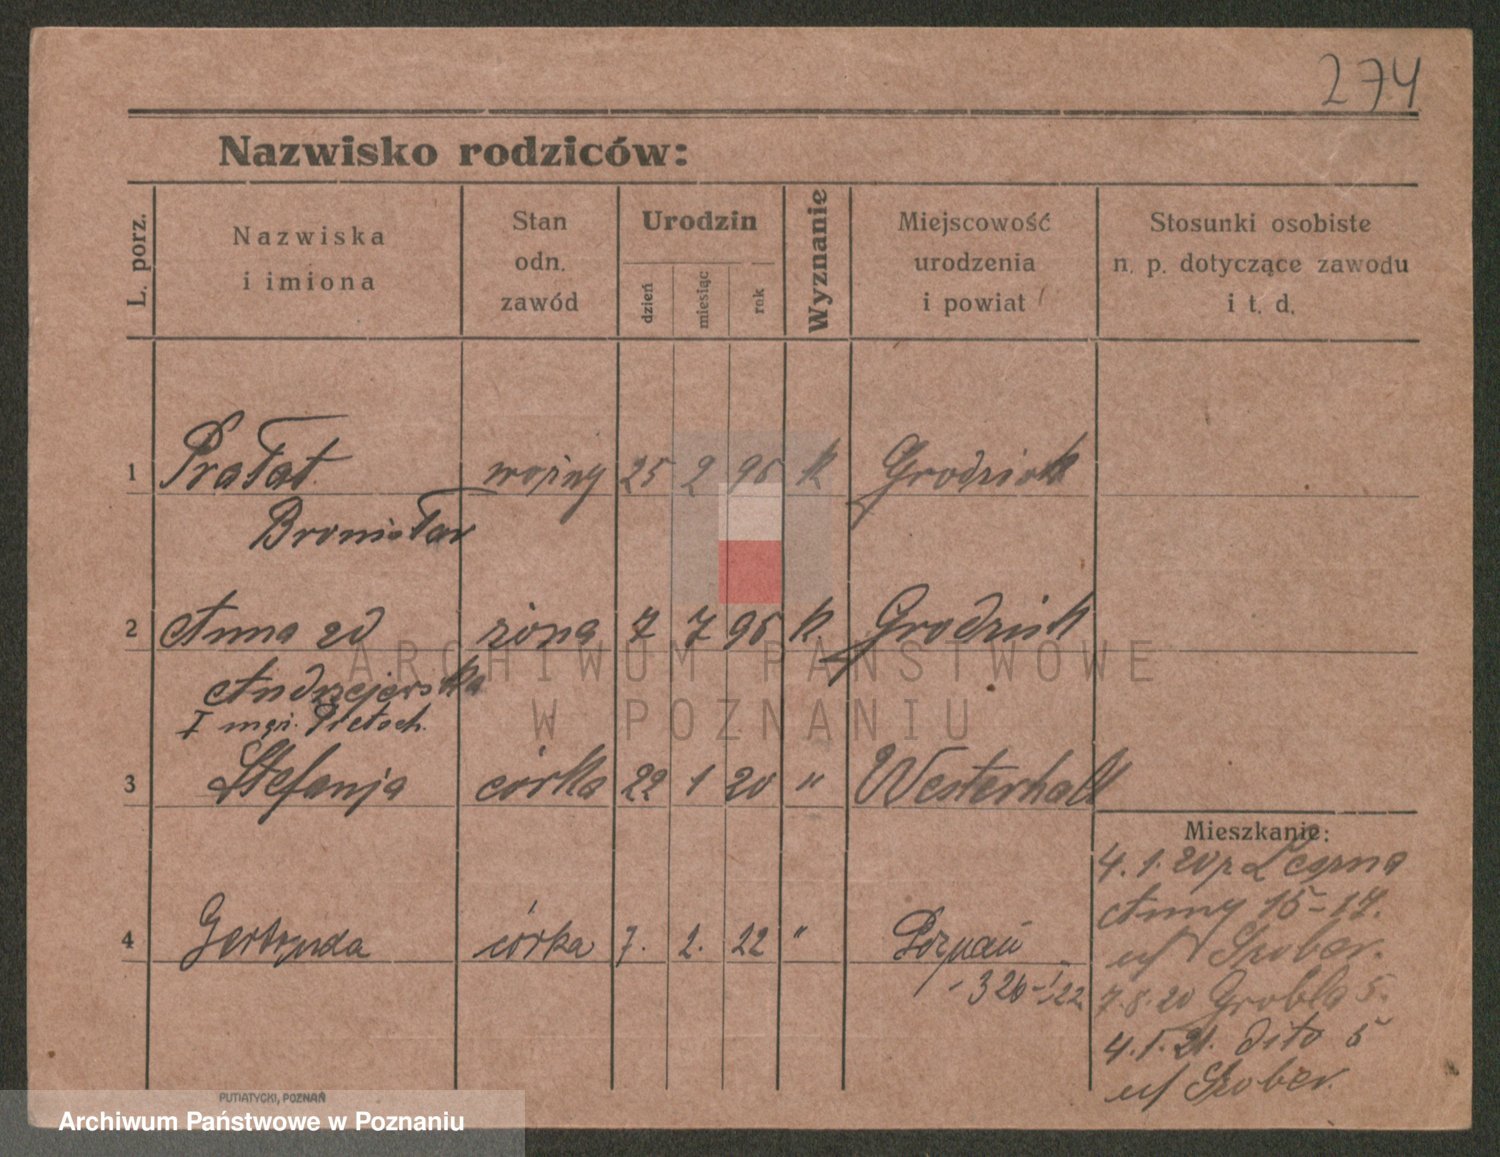 274
Nazwisko rodziców:
L. porz.
Nazwiska
i imiona
Stan
odn.
zawód
Urodzin
dzień
miesiąc
rok
Wyznanie
Miejscowość
urodzenia
i powiat
Stosunki osobiste
n. p. dotyczące zawodu
i t. d.
1 Prałat woźny 25 2 96 k Grodzisk
Bronisław
2 Anna zd żona 7 7 96 k. Grodzisk
Andrzejewska
I
3 Stefanja córka 22 1 20 " Westerholt
Mieszkanie:
4.1.20
Anny 15-17.
4 Gertruda córka 7. 2. 22 " Poznań
7.8.20 Grobla 5.
4.1.21. dito 5
PUTIATYCKI, POZNAŃ
ARCHIWUM PAŃSTWOWE
W POZNANIU
Archiwum Państwowe w Poznaniu